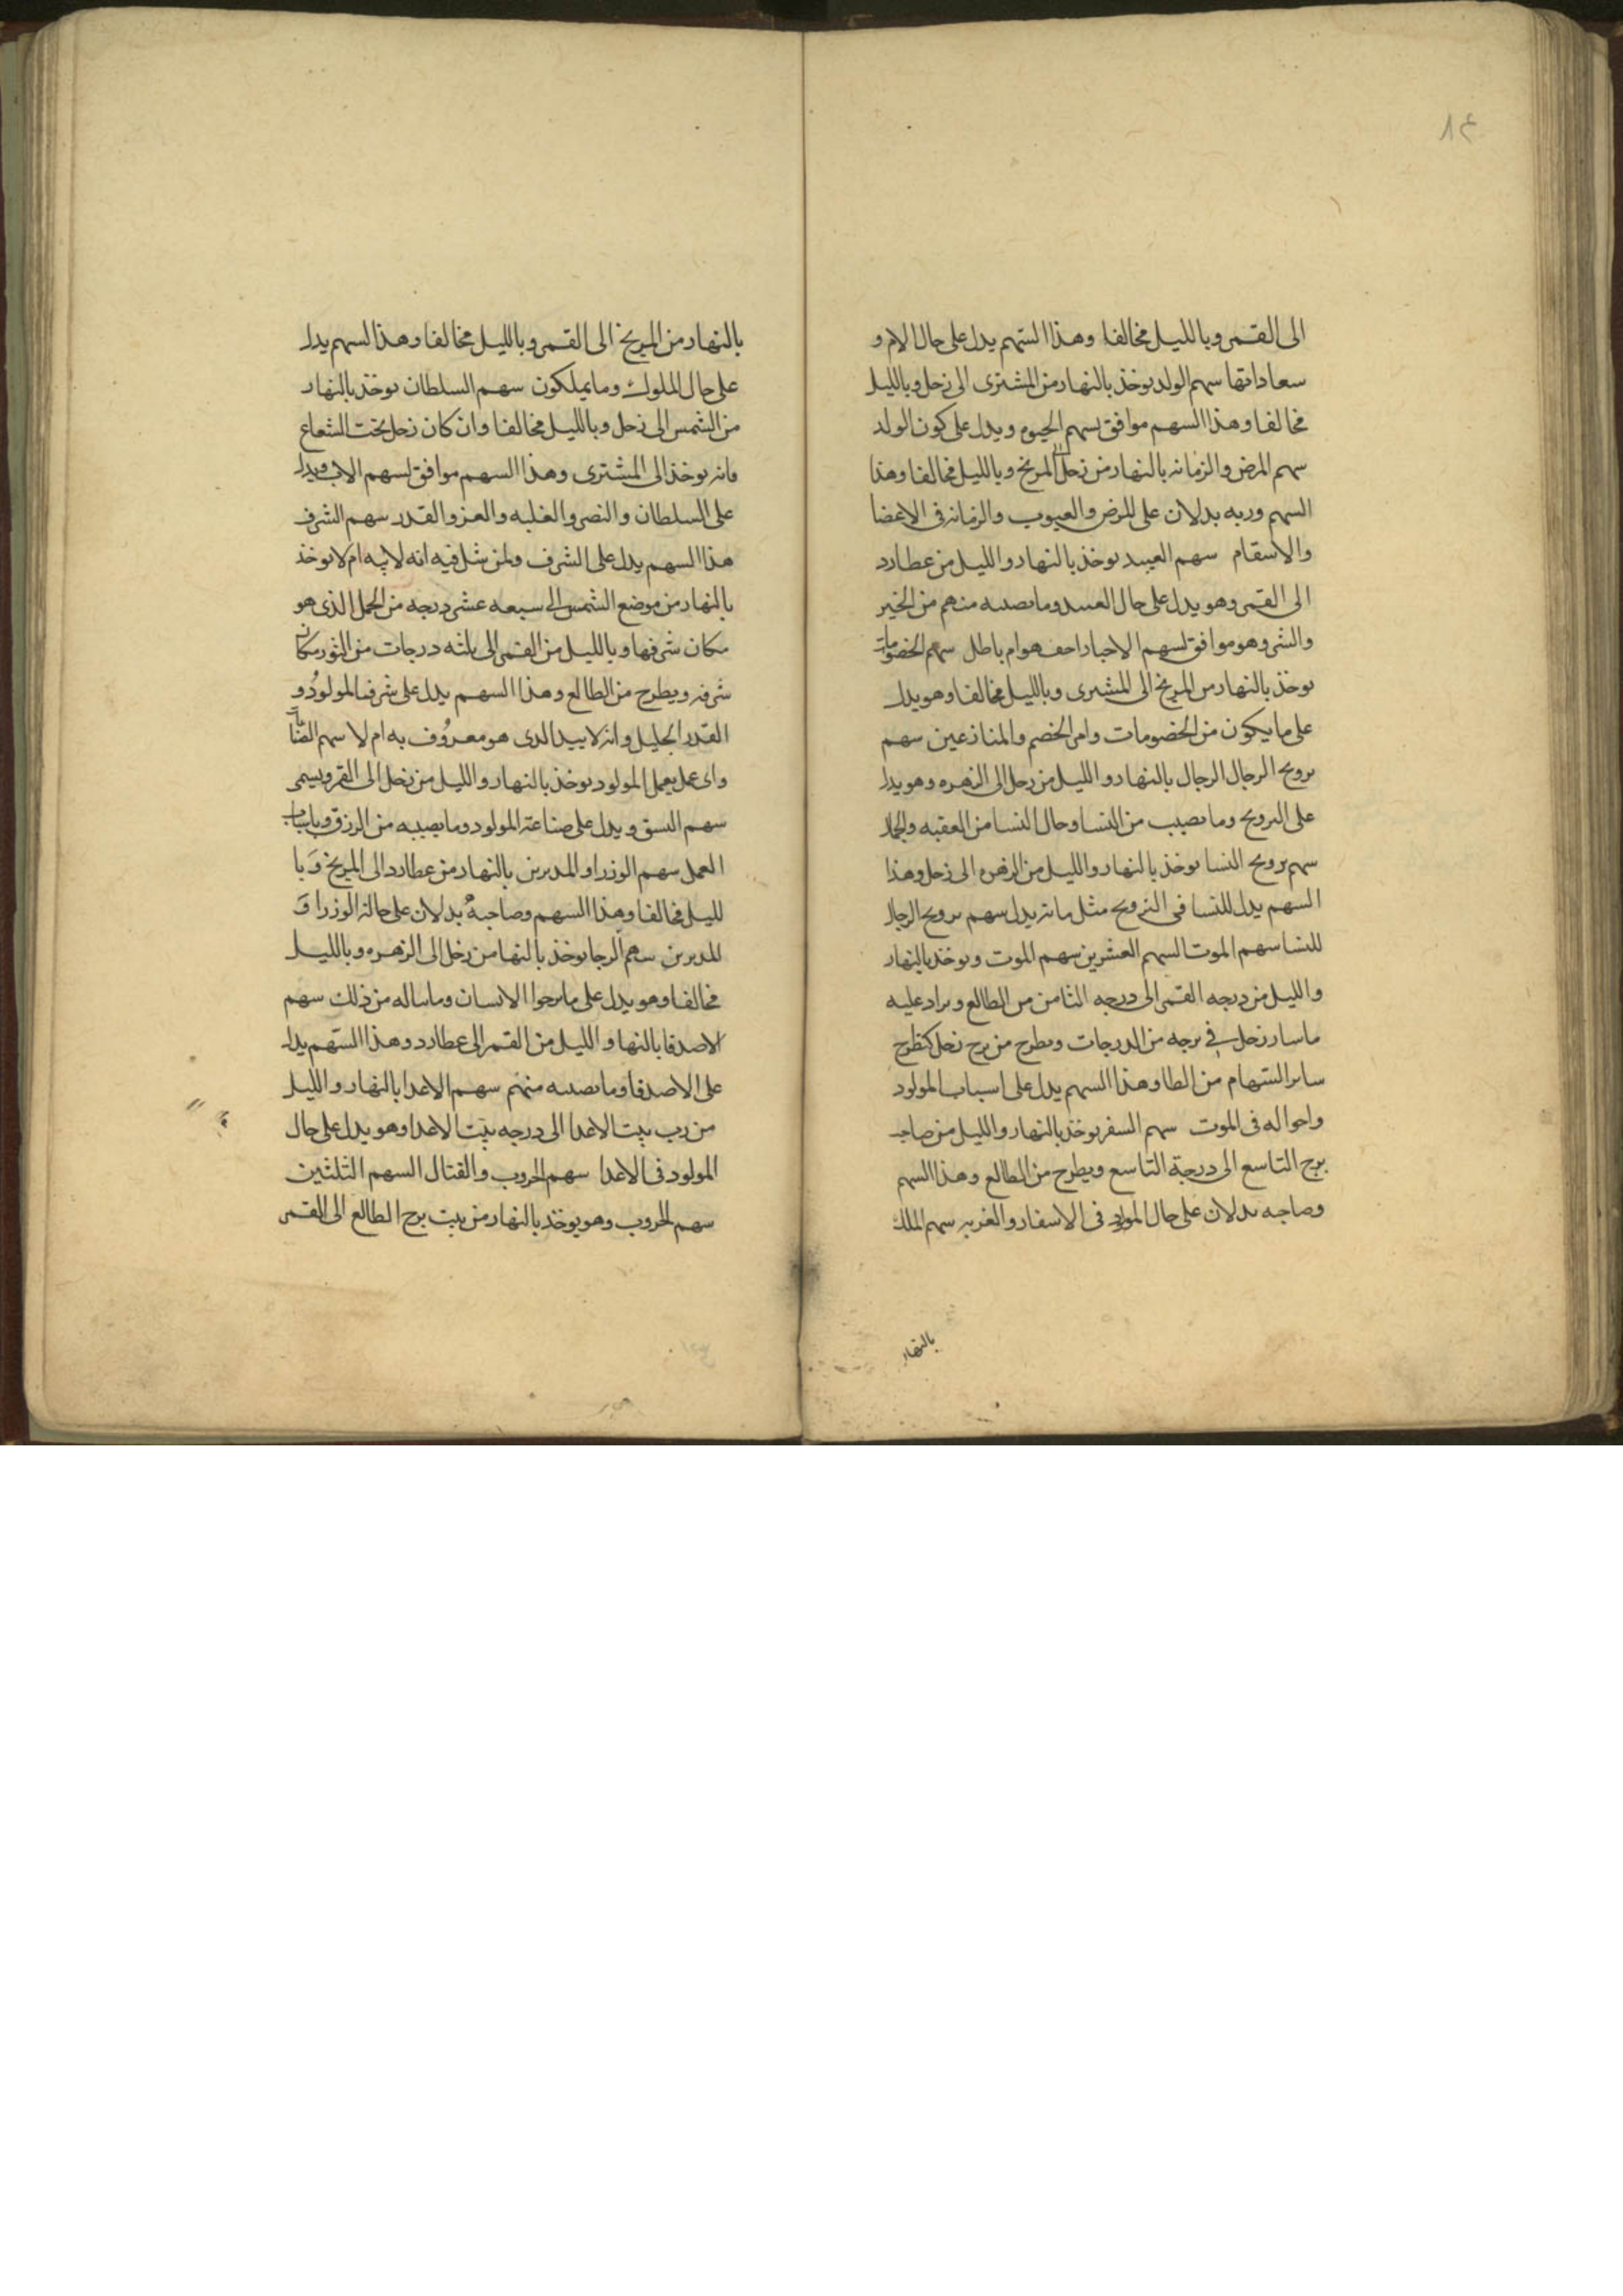 ٨٤
الى القمر وبالليل مخالفا وهذا السهم يدل على حال الام و
سعاداتها سهم الولد يوخذ بالنهار من المشترى الى زحل وبالليل
مخالفا وهذا السهم موافق لسهم الحيوه ويدل على كون الولد
سهم المرض والزمانه بالنهار من زحل الى المريخ وبالليل مخالفا وهذا
السهم وربه يدلان على المرض والعيوب والزمانه فى الاعضا
والاسقام سهم العبيد يوخذ بالنهار والليل من عطارد
الى القمر وهو يدل على حال العبيد وما يصيبه منهم من الخير
والشر وهو موافق لسهم الاخبار احق هو ام باطل سهم الخصومات
يوخذ بالنهار من المريخ الى المشترى وبالليل مخالفا وهو يدل
على ما يكون من الخصومات وامر الخصم والمنازعين سهم
تزويج الرجال الرجال بالنهار والليل من زحل الى الزهره وهو يدل
على التزويج وما يصيب من النسا وحال النسا من العقبه والجمال
سهم تزويج النسا يوخذ بالنهار والليل من الزهره الى زحل وهذا
السهم يدل للنسا فى التزويج مثل ما يدل سهم تزويج الرجال
للنسا سهم الموت السهم العشرين سهم الموت ويوخذ بالنهار
والليل من درجه القمر الى درجه الثامن من الطالع ويزاد عليه
ما سار زحل فى برجه من الدرجات ويطرح من برج زحل كنطرح
ساير السهام من الطا وهذا السهم يدل على اسباب المولود
واحواله فى الموت سهم السفر يوخذ بالنهار والليل من صاحب
برج التاسع الى درجة التاسع ويطرح من الطالع وهذا السهم
وصاحبه يدلان على حال المولود فى الاسفار والغربه سهم الملك
بالنهار
بالنهار من المريخ الى القمر وبالليل مخالفا وهذا السهم يدل
على حال الملوك وما يملكون سهم السلطان يوخذ بالنهار
من الشمس الى زحل وبالليل مخالفا وان كان زحل تحت الشعاع
فانه يوخذ الى المشترى وهذا السهم موافق لسهم الاب ويدل
على السلطان والنصر والغلبه والعز والقدر سهم الشرف
هذا السهم يدل على الشرف ولمن شك فيه انه لابيه ام لا يوخذ
بالنهار من موضع الشمس الى سبعه عشر درجه من الحمل الذى هو
مكان شرفها وبالليل من القمر الى ثلثه درجات من الثور مكان
شرفه ويطرح من الطالع وهذا السهم يدل على شرف المولود و
القدر الجليل وانه لابيه الذى هو معروف به ام لا سهم
واى عمل يعمل المولود يوخذ بالنهار والليل من زحل الى القمر ويسمى
سهم النسق ويدل على صناعة المولود وما يصيبه من الرزق وباسباب
العمل سهم الوزرا والمدبرين بالنهار من عطارد الى المريخ وبا
لليل مخالفا وهذا السهم وصاحبه يدلان على حالة الوزرا و
المدبرين سهم الرجا يوخذ بالنها من زحل الى الزهره وبالليل
مخالفا وهو يدل على ما يرجوا الانسان وما يناله من ذلك سهم
الاصدقا بالنها والليل من القمر الى عطارد وهذا السهم يدل
على الاصدقا وما يصيبه منهم سهم الاعدا بالنهار والليل
من رب بيت الاعدا الى درجه بيت الاعدا وهو يدل على حال
المولود فى الاعدا سهم الحروب والقتال السهم الثلثين
سهم الحروب وهو يوخذ بالنهار من بيت برج الطالع الى القمر